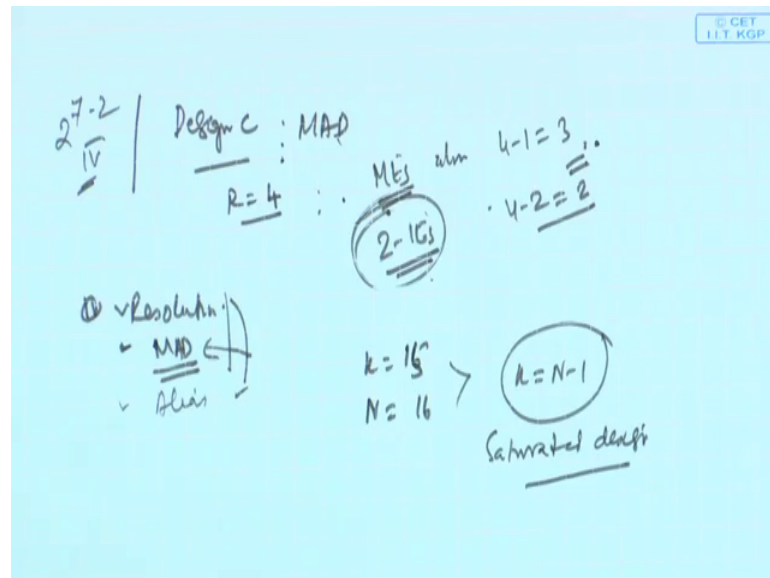 © CET
I.I.T. KGP
2^{7-2}_{IV} | Design C : MAD
R = 4 : MEs 4-1 = 3
2-IEs 4-2 = 2
Resolution
MAD
Alias
k = 15
N = 16
k = N-1
Saturated design